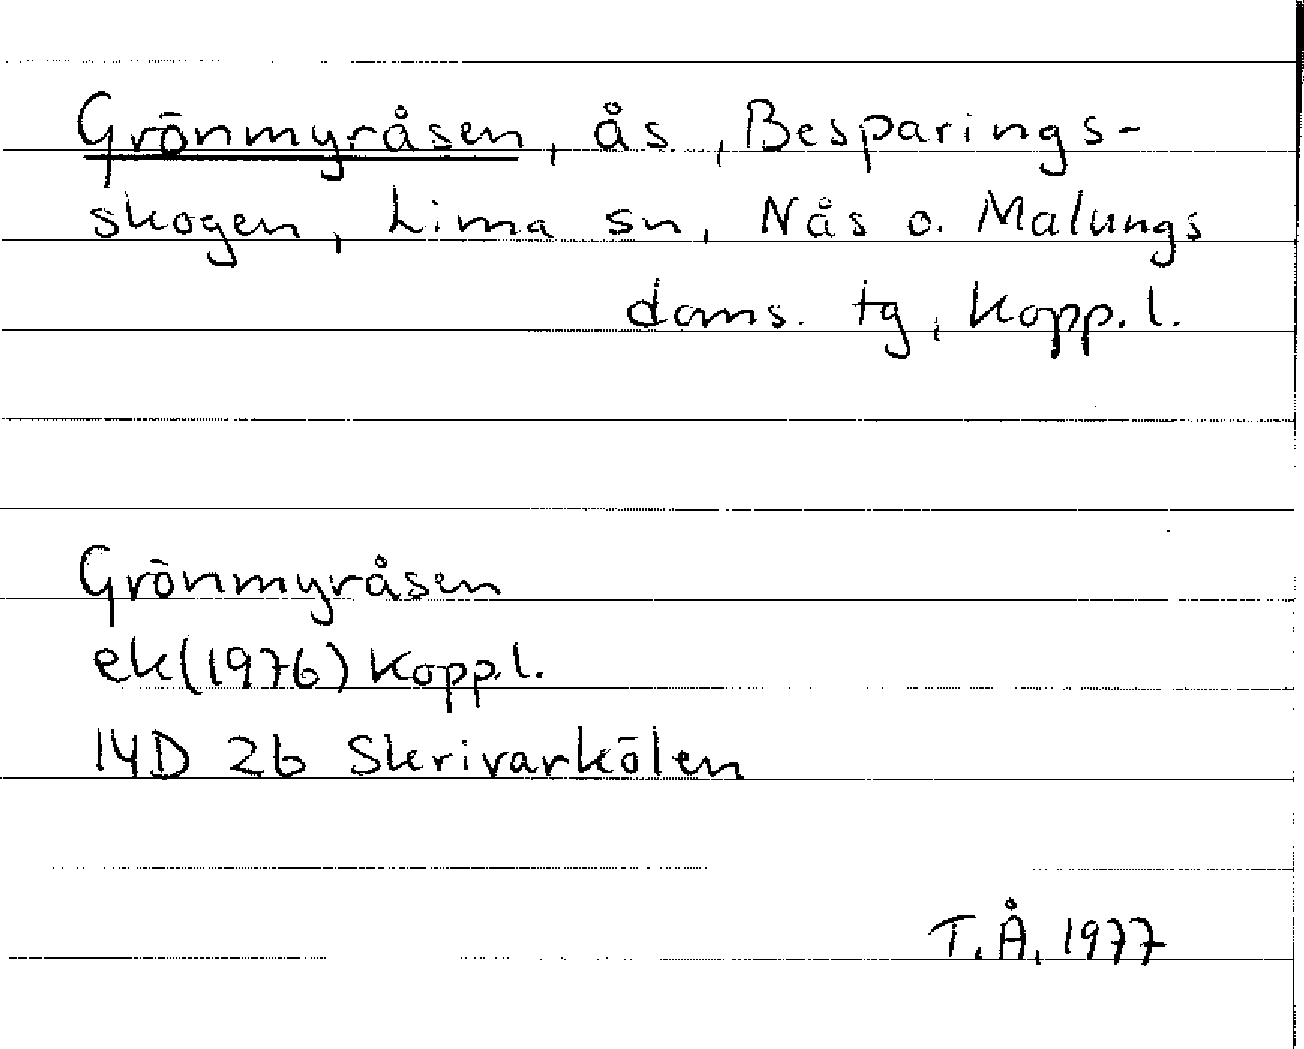 Grönmyråsen, ås, Besparings-
skogen, Lima sn, Nås o. Malungs
doms. tg, Kopp. l.
Grönmyråsen
ek(1976) Kopp.l.
14D 2b Skrivarkölen
T.Å. 1977